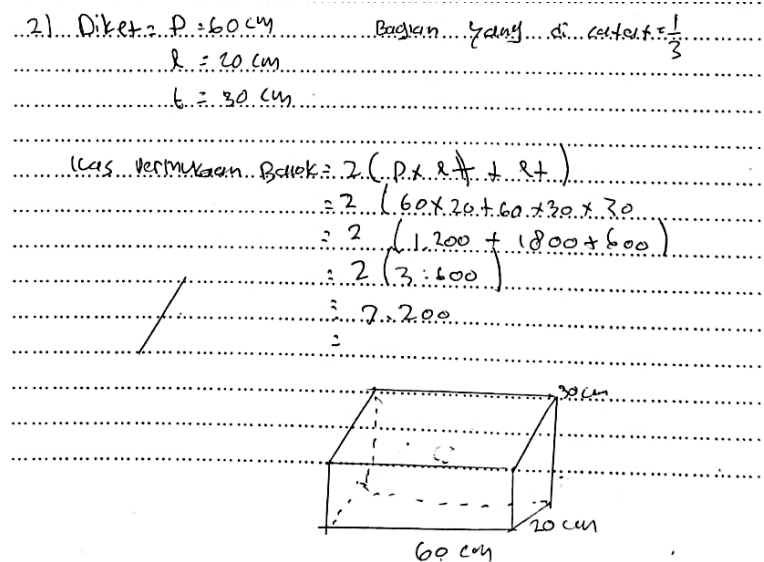 2) Diket = P = 60 cm Bagian yang di catat = 1/3
l = 20 cm
t = 30 cm
Luas Permukaan Balok = 2 ( P x l + + lt )
= 2 ( 60 x 20 + 60 x 30 x 30
= 2 ( 1.200 + 1800 + 600 )
= 2 ( 3.600 )
= 7.200
=
30 cm
20 cm
60 cm